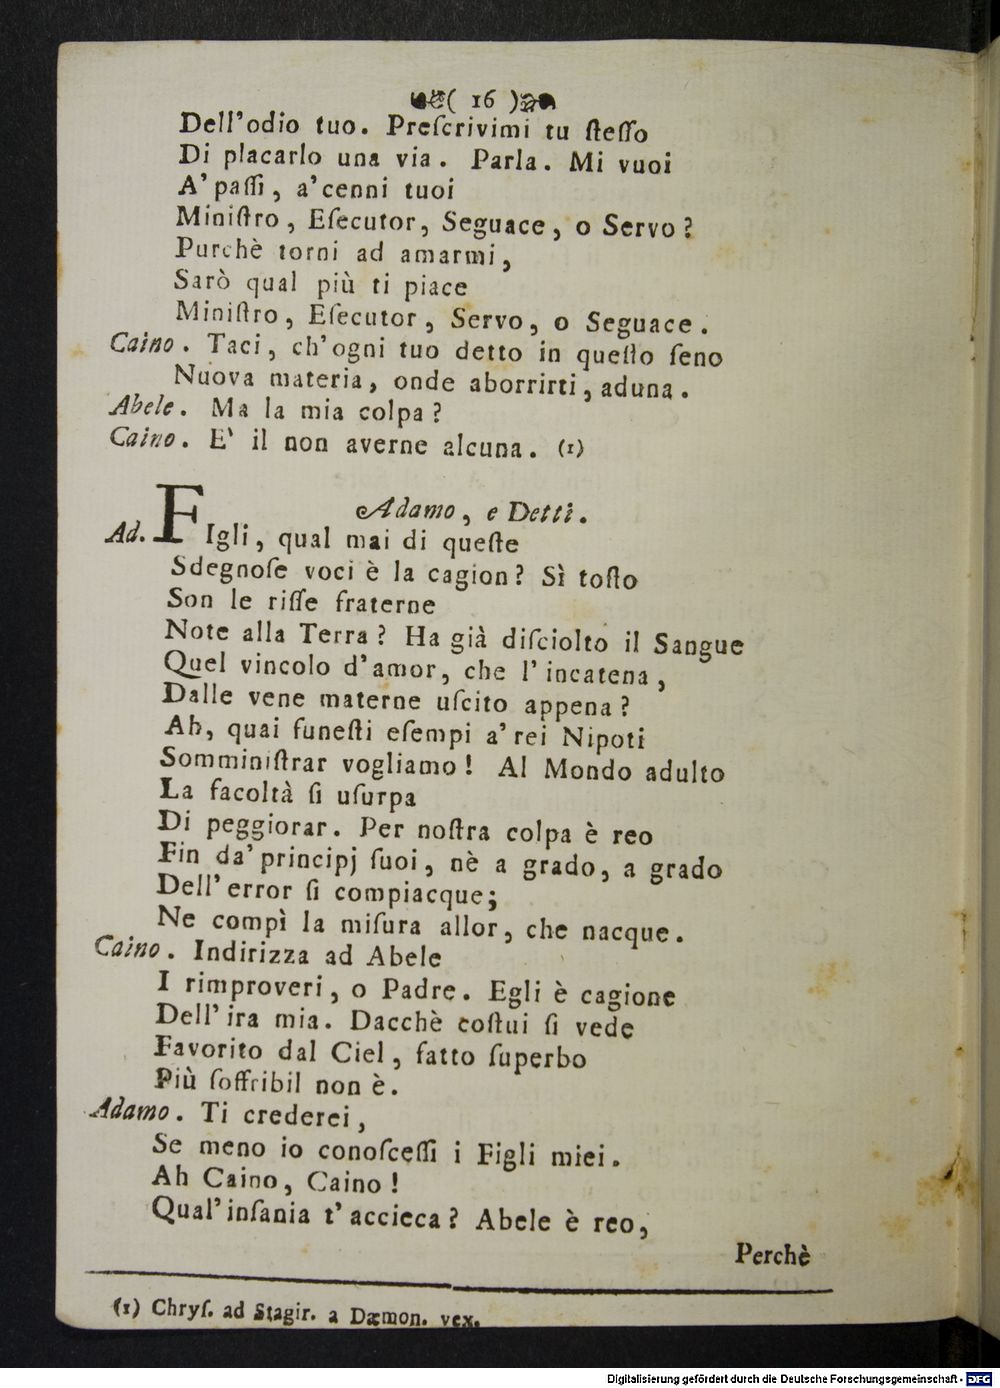 ( 16 )
Dell'odio tuo. Preſcrivimi tu ſteſſo
Di placarlo una via. Parla. Mi vuoi
A' paſſi, a' cenni tuoi
Miniſtro, Eſecutor, Seguace, o Servo?
Purchè torni ad amarmi,
Sarò qual più ti piace
Miniſtro, Eſecutor, Servo, o Seguace.
Caino. Taci, ch'ogni tuo detto in queſto ſeno
Nuova materia, onde aborrirti, aduna.
Abele. Ma la mia colpa?
Caino. E' il non averne alcuna. (1)
Adamo, e Detti.
Ad. FIgli, qual mai di queſte
Sdegnoſe voci è la cagion? Sì toſto
Son le riſſe fraterne
Note alla Terra? Ha già diſciolto il Sangue
Quel vincolo d'amor, che l'incatena,
Dalle vene materne uſcito appena?
Ah, quai funeſti eſempi a' rei Nipoti
Somminiſtrar vogliamo! Al Mondo adulto
La facoltà ſi uſurpa
Di peggiorar. Per noſtra colpa è reo
Fin da' principj ſuoi, nè a grado, a grado
Dell'error ſi compiacque;
Ne compì la miſura allor, che nacque.
Caino. Indirizza ad Abele
I rimproveri, o Padre. Egli è cagione
Dell'ira mia. Dacchè coſtui ſi vede
Favorito dal Ciel, fatto ſuperbo
Più ſoffribil non è.
Adamo. Ti crederei,
Se meno io conoſceſſi i Figli miei.
Ah Caino, Caino!
Qual'inſania t'accieca? Abele è reo,
Perchè
(1) Chryſ. ad Stagir. a Dæmon. vex.
Digitalisierung gefördert durch die Deutsche Forschungsgemeinschaft - DFG